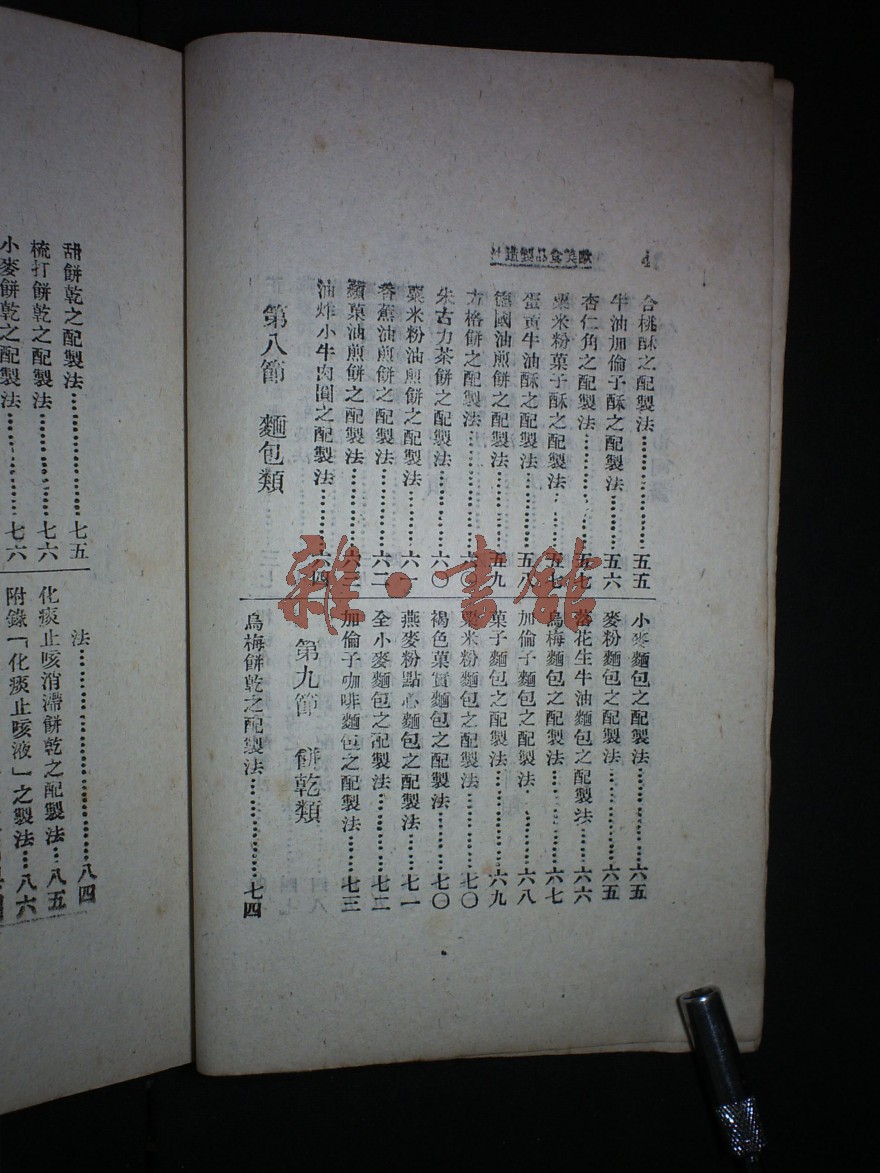 4
歐美食品製造法
合桃酥之配製法…………………五五
牛油加倫子酥之配製法…………五六
杏仁角之配製法…………………五七
粟米粉菓子酥之配製法…………五七
蛋黃牛油酥之配製法……………五八
德國油煎餅之配製法……………五九
方格餅之配製法…………………六〇
朱古力茶餅之配製法……………六〇
粟米粉油煎餅之配製法…………六一
香蕉油煎餅之配製法……………六二
蘋菓油煎餅之配製法……………六三
油炸小牛肉圓之配製法…………六四
第八節 麵包類
小麥麵包之配製法………………六五
麥粉麵包之配製法………………六五
落花生牛油麵包之配製法………六六
烏梅麵包之配製法………………六七
加倫子麵包之配製法……………六八
菓子麵包之配製法………………六九
粟米粉麵包之配製法……………七〇
褐色菓實麵包之配製法…………七〇
燕麥粉點心麵包之配製法………七一
全小麥麵包之配製法……………七二
加倫子咖啡麵包之配製法………七三
第九節 餅乾類
烏梅餅乾之配製法………………七四
甜餅乾之配製法…………………七五
梳打餅乾之配製法………………七六
小麥餅乾之配製法………………七六
法…………………八四
化痰止咳消滯餅乾之配製法…八五
附錄「化痰止咳液」之製法…八六
雜·書館